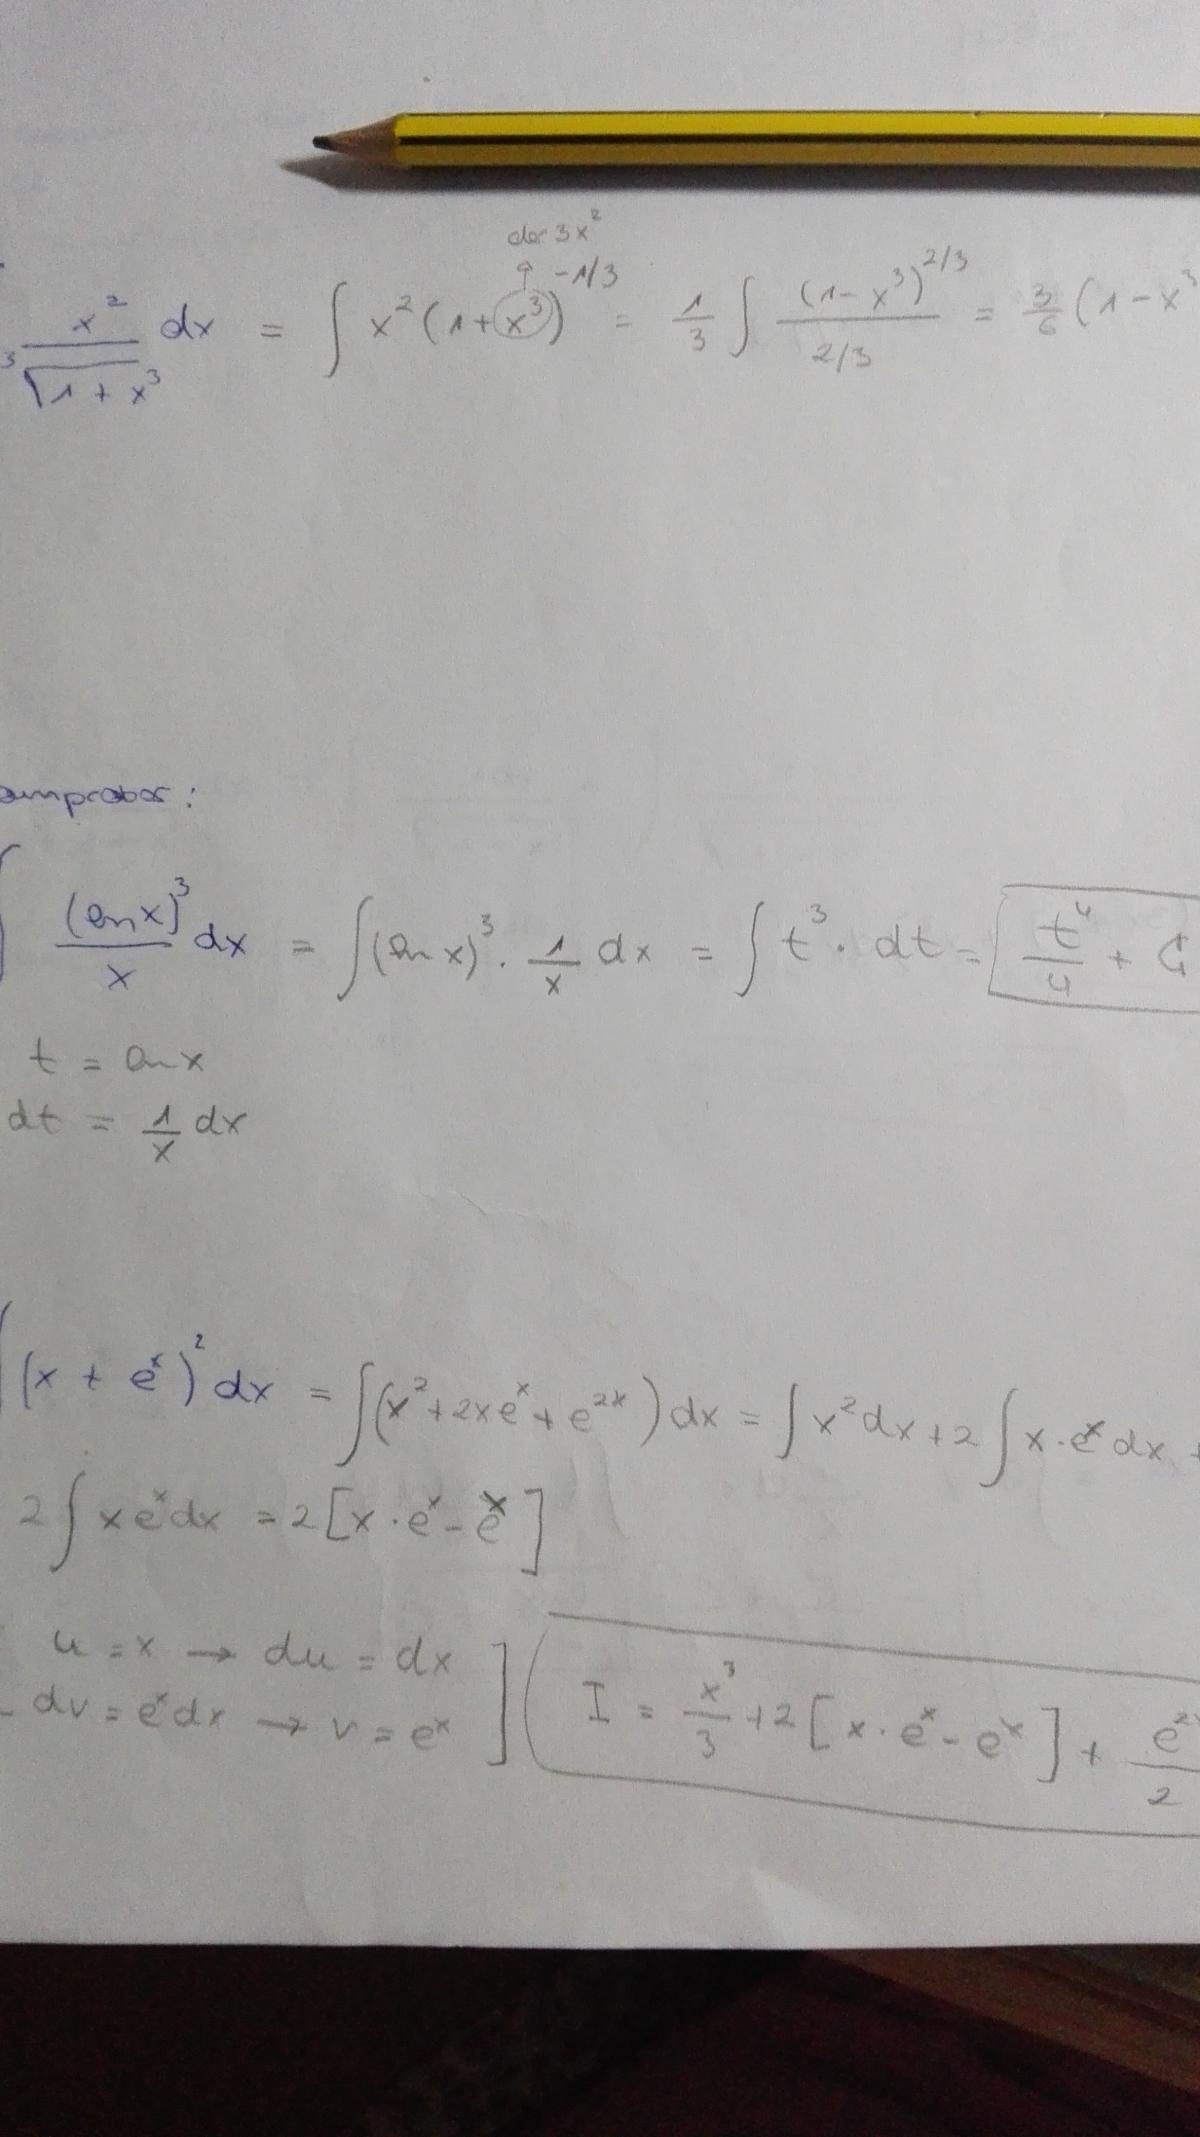 der 3x²
x² / ³√(1 + x³) dx = ∫ x² (1 + x³)^(-1/3) = 1/3 ∫ (1 - x³)^(2/3) / (2/3) = 3/6 (1 - x³
omprobar:
∫ (ln x)³ / x dx = ∫ (ln x)³ · 1/x dx = ∫ t³ · dt = t⁴/4 + C
t = ln x
dt = 1/x dx
∫ (x + eˣ)² dx = ∫ (x² + 2xeˣ + e²ˣ) dx = ∫ x² dx + 2 ∫ x · eˣ dx +
2 ∫ x eˣ dx = 2 [x · eˣ - eˣ]
u = x → du = dx
dv = eˣ dx → v = eˣ ]
I = x³/3 + 2 [x · eˣ - eˣ] + e²ˣ/2